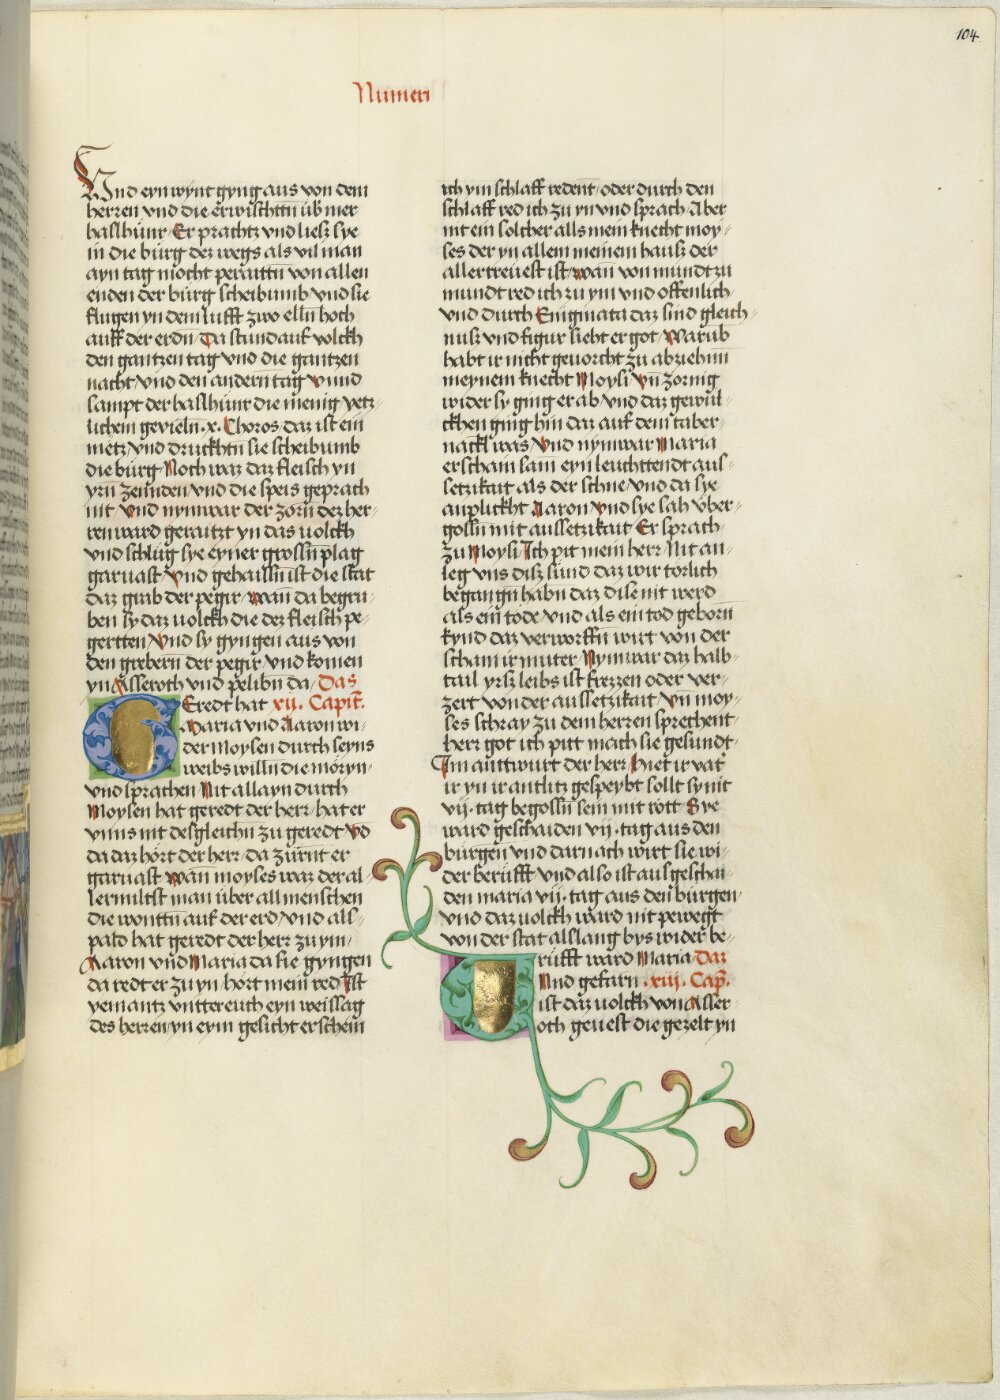 104
Numeri
Vnd eyn wynt gyng aus von dem
herren vnd die erwischttn üb mer
haslhünr Er prachtz vnd liesz sye
in die bürg dez wegs als vil man
ayn tag mocht peraittn von allen
enden der bürg scheibumb vnd sie
flugen yn dem lufft zwo elln hoch
auff der erdn Da stund auf volckh
den gantzen tag vnd die gantzen
nacht vnd den andern tag vnnd
sampt der haslhünr die menig yetz
lichem gevieln .x. Choros daz ist ein
metz vnd druckhtn sie scheibumb
die bürg Noch waz daz fleisch yn
yrn zennden vnd die speis geprach
nit vnd nymwar der zorn dez her
ren ward geraitzt yn das uolckh
vnd schlüg sye eyner grossn plag
garuast vnd gehaissn ist die stat
daz grab der pegir wan da begru
ben sy daz uolckh die dez fleisch pe
gertten vnd sy gyngen aus von
den grebern der pegir vnd komen
yn Asseroth vnd pelibn da Das
Eredt hat xij. Capit.
Maria vnd Aaron wi
der Moysen durch seyns
weibs willn die moryn
vnd sprachen Nit allayn durch
Moysen hat geredt der herr hat er
vnns nit desgleichn zu geredt vd
da daz hort der herr da zürnt er
garuast wan moyses waz der al
lermiltst man über all menschen
die wonttn auf der erd vnd als
pald hat geredt der herr zu ym
Aaron vnd Maria da sie gyngen
da redt er zu yn hört mein red Ist
yemantz vntter euch eyn weissag
des herren yn eym gesicht erschein
ich ym schlaff redent oder durch den
schlaff red ich zu yn vnd sprach Aber
nit ein solcher alls mein knecht moy
ses der yn allem meinem hausz der
aller treuest ist wan von mundt zu
mundt red ich zu ym vnd offenlich
vnd durch Enigmata daz sind gleich
nusz vnd figur sieht er got Warüb
habt ir nicht geuorcht zu abziehnn
meynem knecht Moysi vn zornig
wider sy ging er ab vnd daz gewül
ckhen ging hin daz auf dem taber
nackl was vnd nymwar Maria
erschain sam eyn leuchttendt aus
setzikait als der schne vnd da sye
anplickht Aaron vnd sye sah vber
gossn mit aussetzikait Er sprach
zu Moysi Ich pit mein herr Nit an
leg vns disz sünd daz wir torlich
begangn habn daz dise nit werd
als ein tode vnd als ein tod geborn
kynd daz verworffn wirt von der
scham ir muter Nymwar daz halb
tail yrsz leibs ist frezzen oder ver
zert von der aussetzikait vn moy
ses schray zu dem herren sprechent
herr got ich pitt mach sie gesundt
Im anttwurt der herr Hiet ir vat
ir yn ir antlitz gespeybt sollt sy nit
vij. tag begossn sein mit rött Sye
ward geschaiden vij. tag aus den
bürgen vnd darnach wirt sie wi
der berüfft vnd also ist ausgeschai
den maria vij. tag aus den bürgen
vnd daz uolckh ward nit pewegt
von der stat alslang bys wider be
rüfft ward Maria Daz
Nnd gefarn .xiij. Cap.
ist daz uolckh von Asser
oth geuest die gezelt yn